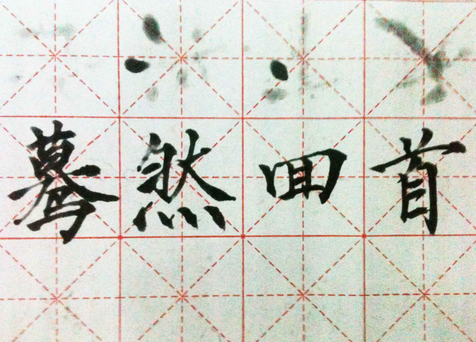 蓦然回首